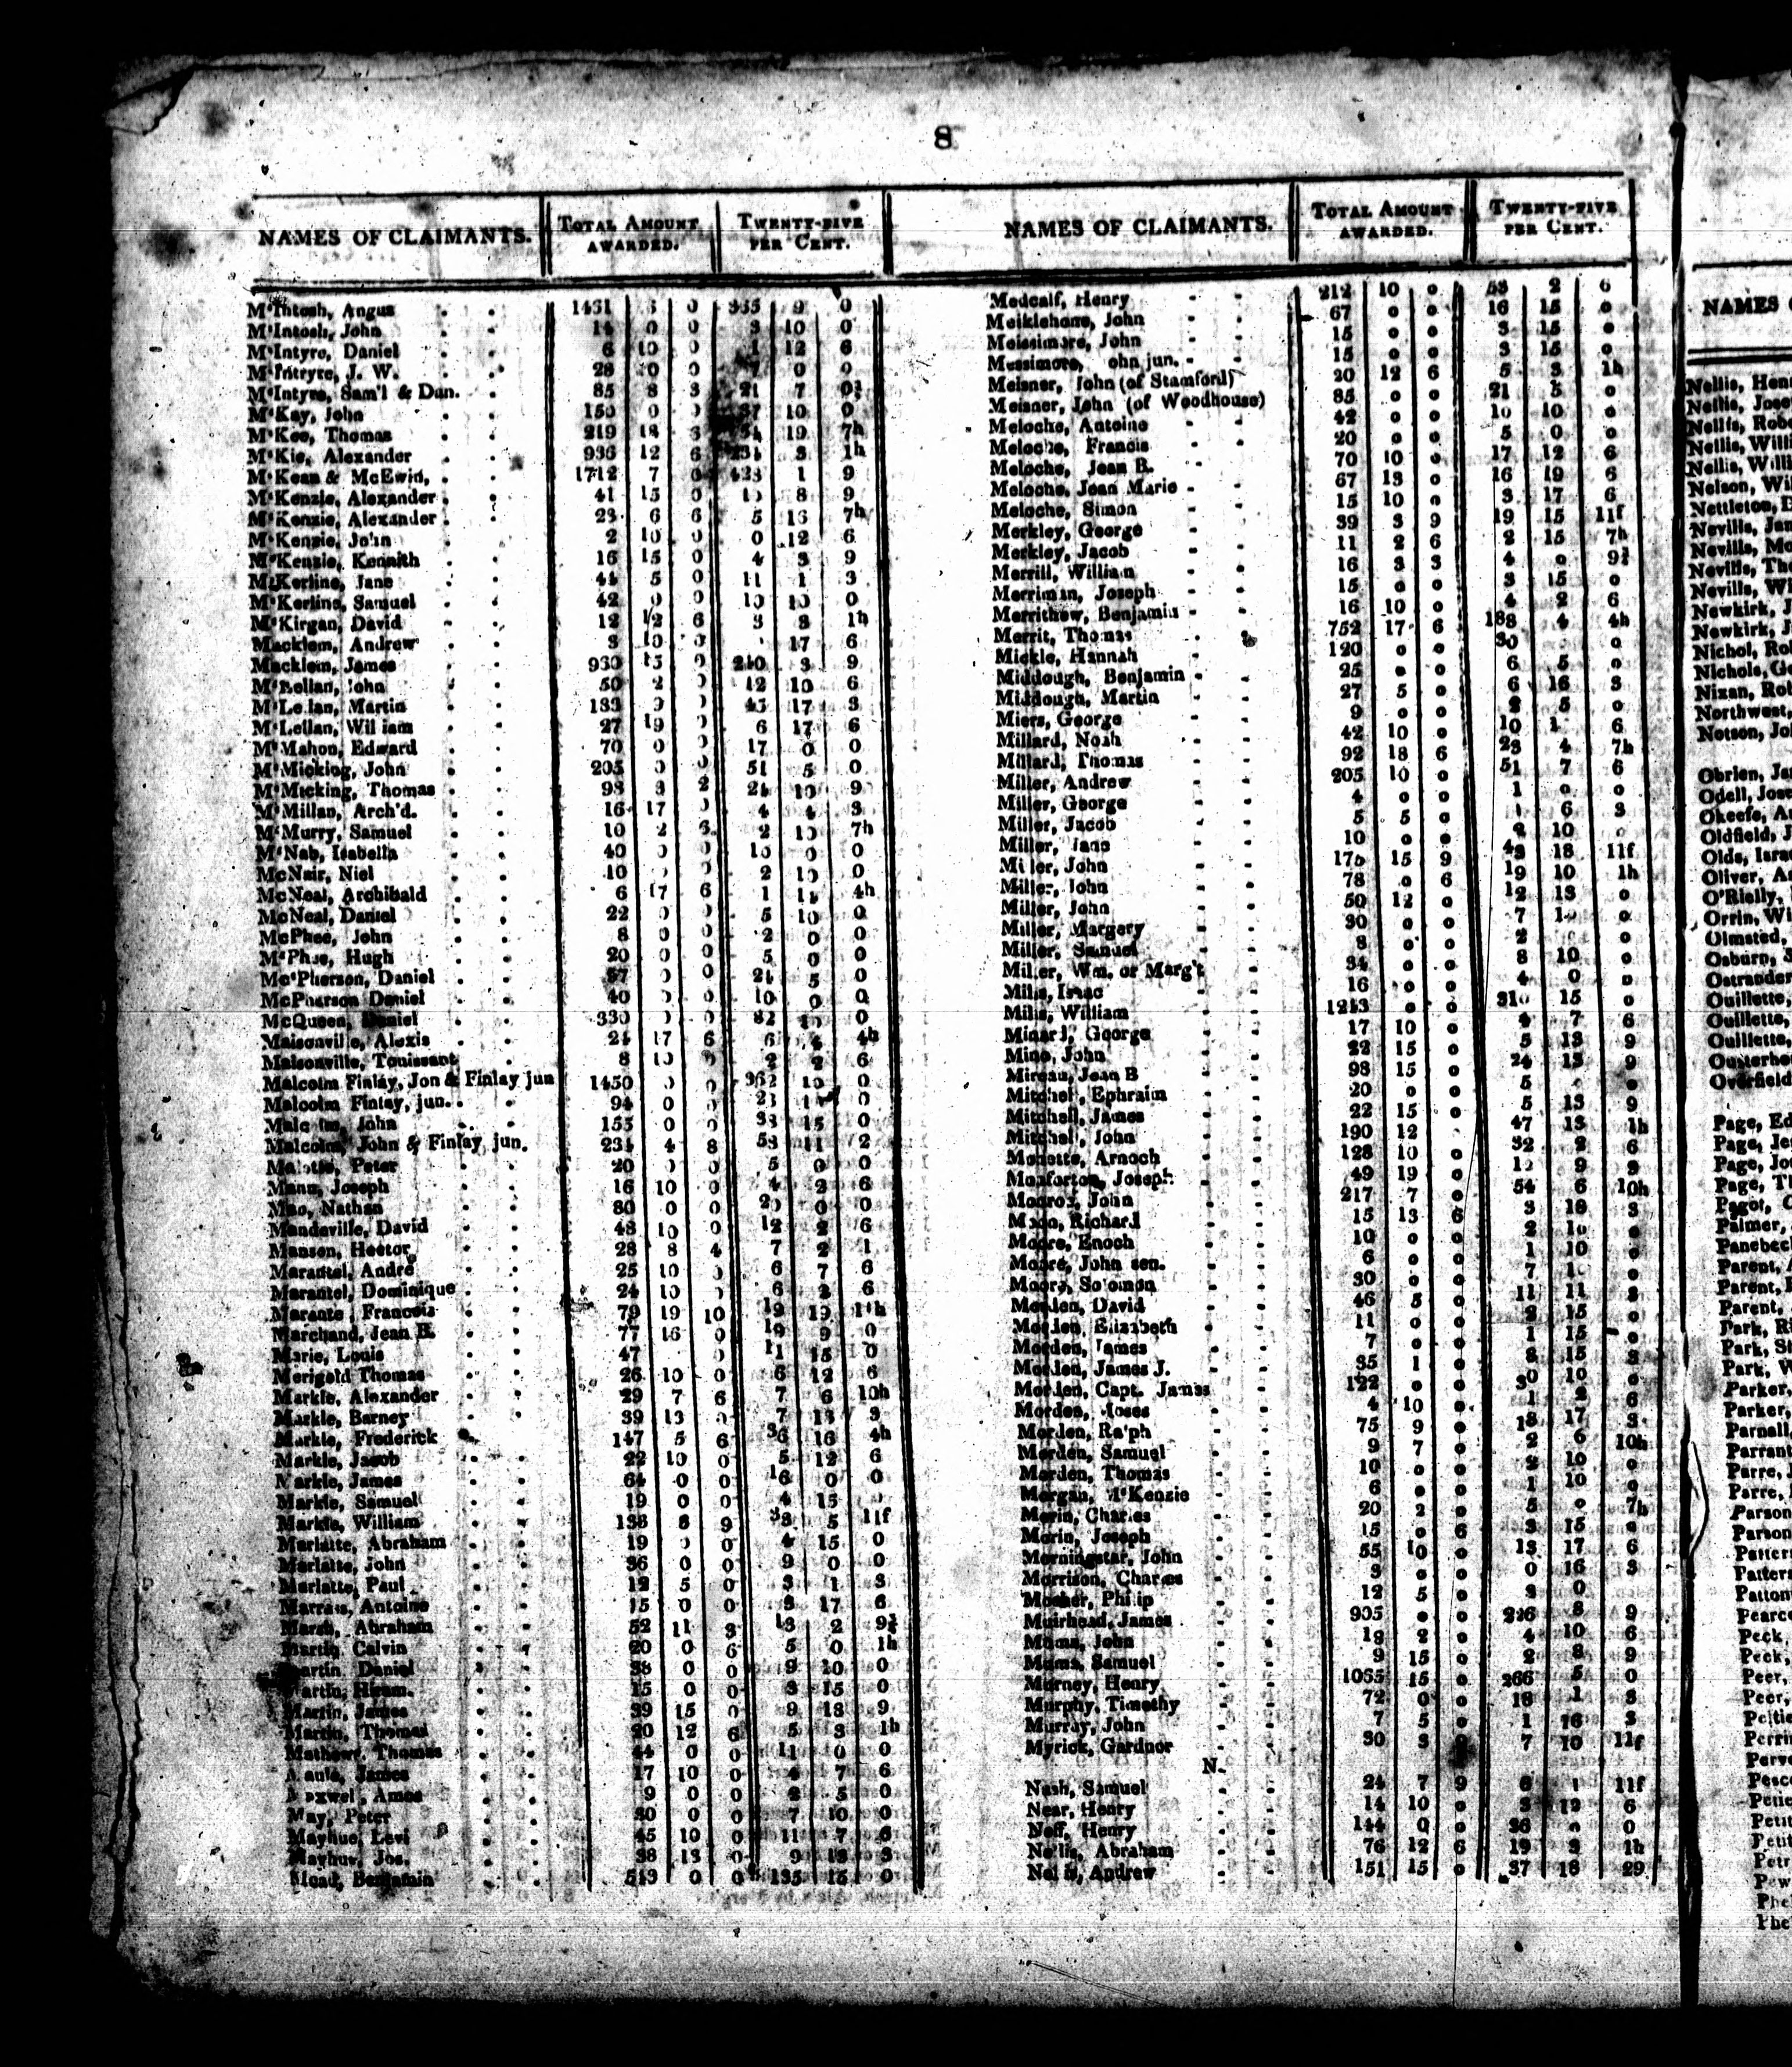 8
NAMES OF CLAIMANTS. TOTAL AMOUNT AWARDED. TWENTY-FIVE PER CENT.
M'Intosh, Angus 1431 9 0
M'Intosh, John 14 0 0 3 10 0
M'Intyre, Daniel 6 10 0 1 12 6
M'Intryre, J. W. 28 0 0 7 0 0
M'Intyre, Sam'l & Dan. 85 8 3 21 7 0¾
M'Kay, John 150 0 0 37 10 0
M'Kee, Thomas 219 18 6 54 19 7h
M'Kie, Alexander 936 12 6 234 3 1h
M'Kean & McEwin, 1712 7 0 428 1 9
M'Kenzie, Alexander 41 15 0 10 8 9
M'Kenzie, Alexander 23 6 6 5 16 7h
M'Kenzie, John 2 10 0 0 12 6
M'Kenzie, Kennith 16 15 0 4 3 9
M'Kerline, Jane 44 5 0 11 1 3
M'Kerline, Samuel 42 0 0 10 10 0
M'Kirgan, David 12 12 6 3 3 1h
Macklem, Andrew 3 10 0 17 6
Macklem, James 930 15 0 3 9
M'Lellan, John 50 2 0 12 10 6
M'Lellan, Martin 17 3
M'Lellan, William 27 19 0 6 17 6
M'Mahon, Edward 70 0 0 17 0 0
M'Micking, John 205 0 0 51 5 0
M'Micking, Thomas 98 3 2 24 10 9
M'Millan, Arch'd. 16 17 0 4 4 3
M'Murry, Samuel 10 2 6 2 10 7h
M'Nab, Isabella 40 0 0 10 0 0
McNair, Niel 10 0 0 2 10 0
McNeal, Archibald 6 17 6 1 14 4h
McNeal, Daniel 22 0 0 5 10 0
McPhee, John 8 0 0 2 0 0
M'Phee, Hugh 20 0 0 5 0 0
Mc'Pherson, Daniel 97 0 0 24 5 0
McPherson Daniel 40 0 0 10 0 0
McQueen, Daniel 330 0 0 82 10 0
Maisonville, Alexis 24 17 6 6 4 4h
Maisonville, Touissant 8 10 0 2 2 6
Malcolm Finlay, Jon & Finlay jun 1450 0 0 362 10 0
Malcolm Finlay, jun. 94 0 0 23 10 0
Malcolm, John 155 0 0 38 15 0
Malcolm, John & Finlay jun. 234 4 8 58 11 2
Malotte, Peter 20 0 0 5 0 0
Mann, Joseph 16 10 0 4 2 6
Mao, Nathan 80 0 0 20 0 0
Mandeville, David 48 10 0 12 2 6
Manson, Hector 28 8 4 7 2 1
Marantel, André 25 10 0 6 7 6
Marantel, Dominique 24 10 0 6 2 6
Marante, Francois 79 19 10 19 19 11h
Marchand, Jean B. 77 16 0 19 9 0
Marie, Louis 47 0 11 15 0
Merigold Thomas 26 10 0 6 12 6
Markle, Alexander 29 7 6 7 6 10h
Markle, Barney 39 13 0 7 18 3
Markle, Frederick 147 5 6 36 16 4h
Markle, Jacob 22 10 0 5 12 6
Markle, James 64 0 0 16 0 0
Markle, Samuel 19 0 0 4 15 0
Markle, William 133 8 9 33 5 11f
Marlatte, Abraham 19 0 0 4 15 0
Marlatte, John 36 0 0 9 0 0
Marlatte, Paul 12 5 0 3 1 3
Marrais, Antoine 15 0 0 3 17 6
Marsh, Abraham 52 11 3 13 2 9¾
Martin Calvin 20 0 6 5 0 1h
Martin Daniel 38 0 0 9 10 0
Martin, Hiram. 15 0 0 3 15 0
Martin, James 39 15 0 9 18 9
Martin, Thomas 20 12 6 5 3 1h
Mathews, Thomas 44 0 0 11 0 0
Maule, James 17 10 0 4 7 6
Maxwel, Amos 9 0 0 2 5 0
May, Peter 30 0 0 7 10 0
Mayhue, Levi 45 10 0 11 7 6
Mayhue, Jos. 38 13 0 9 13 3
Mead, Benjamin 543 0 0 135 15 0
NAMES OF CLAIMANTS. TOTAL AMOUNT AWARDED. TWENTY-FIVE PER CENT.
Medcalf, Henry 212 10 0 53 2 6
Meiklehone, John 67 0 0 16 15 0
Meissimore, John 15 0 0 3 15 0
Messimore, ohn jun. 15 0 0 3 15 0
Meisner, John (of Stamford) 20 12 6 5 3 1h
Meisner, John (of Woodhouse) 85 0 0 21 5 0
Meloche, Antoine 42 0 0 10 10 0
Meloche, Francis 20 0 0 5 0 0
Meloche, Jean B. 70 10 0 17 12 6
Meloche, Jean Marie 67 18 0 16 19 6
Meloche, Simon 15 10 0 3 17 6
Merkley, George 39 3 9 19 15 11f
Merkley, Jacob 11 2 6 2 15 7h
Merrill, William 16 3 3 4 0 9¾
Merriman, Joseph 15 0 0 3 15 0
Merrithew, Benjamin 16 10 0 4 2 6
Merrit, Thomas 752 17 6 188 4 4h
Mickle, Hannah 120 0 0 30 0
Middough, Benjamin 25 0 0 6 5 0
Middough, Martin 27 5 0 6 16 3
Miers, George 9 0 0 2 5 0
Millard, Noah 42 10 0 10 1 6
Millard, Thomas 92 18 6 23 4 7h
Miller, Andrew 205 10 0 51 7 6
Miller, George 4 0 0 1 0 0
Miller, Jacob 5 5 0 1 6 3
Miller, Jane 10 0 0 2 10 0
Miller, John 175 15 9 43 18 11f
Miller, John 78 0 6 19 10 1h
Miller, John 50 12 0 12 13 0
Miller, Margery 30 0 0 7 10 0
Miller, Samuel 8 0 0 2 0
Miller, Wm. or Marg't 34 0 0 8 10 0
Mills, Isaac 16 0 0 4 0 0
Mills, William 1243 0 0 310 15 0
Minard, George 17 10 0 4 7 6
Mino, John 22 15 0 5 13 9
Mireau, Jean B 98 15 0 24 13 9
Mitchel, Ephraim 20 0 0 5 0
Mitchell, James 22 15 0 5 13 9
Mitchel, John 190 12 47 13 1h
Monette, Arnoch 128 10 0 32 2 6
Monforton, Joseph 49 19 0 12 9 9
Monrox, John 217 7 0 54 6 10h
Moon, Richard 15 13 6 3 18 3
Moore, Enoch 10 0 0 2 10 0
Moore, John sen. 6 0 0 1 10 0
Moore, Solomon 30 0 0 7 10 0
Morden, David 46 5 0 11 11 3
Morden, Elizabeth 11 0 0 2 15 0
Morden, James 7 0 0 1 15 0
Morden, James J. 35 1 0 8 15 3
Morden, Capt. James 122 0 0 30 10 0
Morden, Moses 4 10 0 1 2 6
Morden, Ralph 75 9 0 18 17 3
Morden, Samuel 9 7 0 2 6 10h
Morden, Thomas 10 0 0 2 10 0
Morgan, M'Kenzie 6 0 0 1 10 0
Morin, Charles 20 2 0 5 0 7h
Morin, Joseph 15 0 6 3 15 0
Morningstar, John 55 10 0 13 17 6
Morrison, Charles 3 0 0 0 16 3
Mosher, Philip 12 5 0 3 0
Muirhead, James 905 0 0 226 8 9
Muma, John 18 2 0 4 10 6
Muma, Samuel 9 15 0 2 8 9
Murney, Henry 1065 15 0 266 5 0
Murphy, Timothy 72 0 0 18 1 3
Murray, John 7 5 0 1 16 3
Myrick, Gardnor 30 3 7 10 11f
N.
Nash, Samuel 24 7 9 6 1 11f
Near, Henry 14 10 0 3 12 6
Neff, Henry 144 0 0 36 0 0
Nellis, Abraham 76 12 6 19 3 1h
Nellis, Andrew 151 15 0 37 18 29
NAMES
Nellis, Hen
Nellis, Jose
Nellis, Robe
Nellis, Willi
Nellis, Willi
Nelson, Wil
Nettleton,
Nevills, Jam
Nevills, Mo
Nevills, The
Nevills, Wi
Newkirk,
Newkirk, J
Nichol, Rol
Nichols, Ge
Nixan, Rob
Northwest,
Notson, Jol
Obrien, Ja
Odell, Jose
Okeefe, A
Oldfield, J
Olds, Israe
Oliver, A
O'Rielly,
Orrin, W
Olmsted,
Osburn, S
Ostrander
Ouillette,
Ouillette,
Ouillette,
Ousterho
Overfield
Page, Ed
Page, Je
Page, Jo
Page, Th
Pagot,
Palmer,
Panebec
Parent, A
Parent,
Parent,
Park, Ri
Park, S
Park, W
Parker,
Parker,
Parnall,
Parrant
Parre,
Parre,
Parson
Parson
Patters
Patters
Patton
Pearc
Peck
Peck,
Peer,
Peer,
Peltie
Perrin
Perve
Pesco
Petie
Petit
Petit
Petr
Pew
Phe
Phe